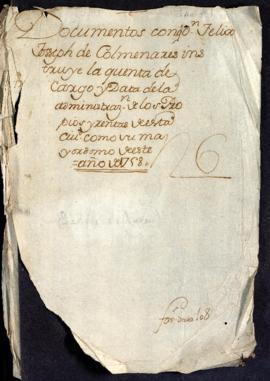 Documentos con q Dn Felix
Joseph de Colmenares ins
truye la quenta de
Cargo y Data de la
administrazn de los Pro
pios y rentas de esta
Ciud como su ma
yordomo de este
año de 1758
6